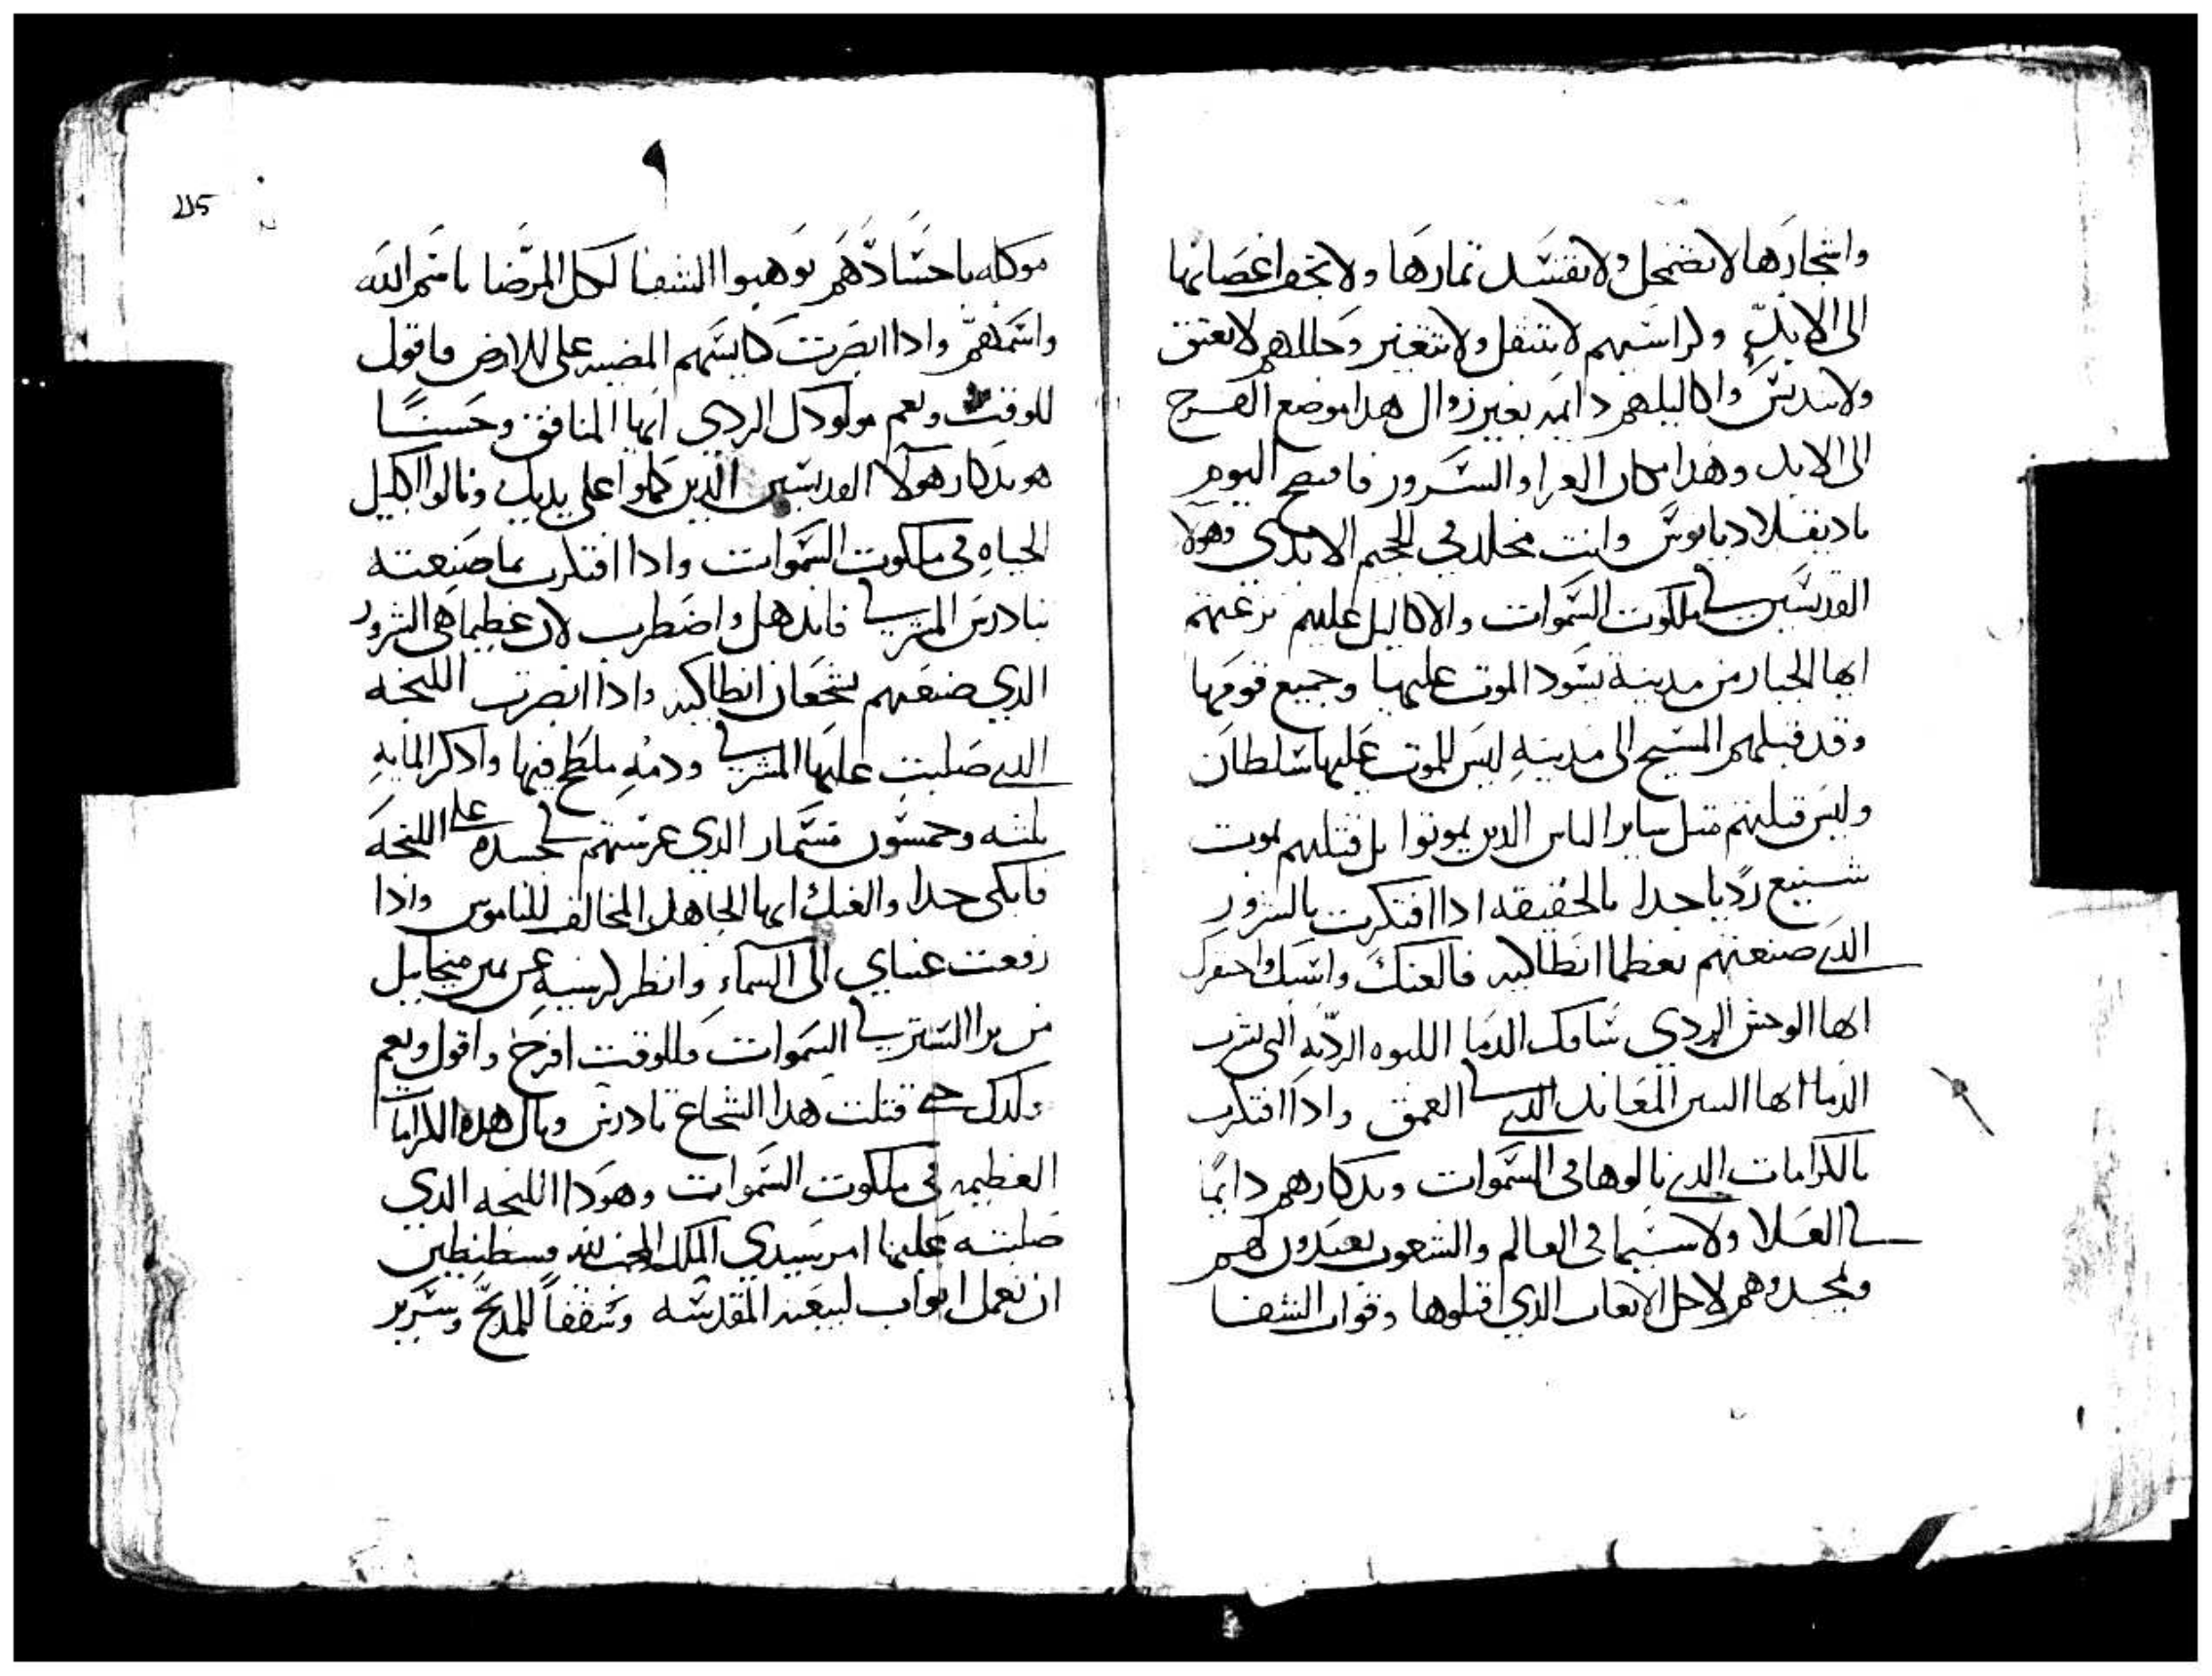 واشجارها لا تضمحل ولا تفسد ثمارها ولا تجف اغصانها
الى الابد وكراسيهم لا تنتقل ولا تتغير وحللهم لا تعتق
ولا تدنس واكاليلهم دايمه بغير زوال هدا موضع الفرح
الى الابد وهدا مكان العزا والسرور فافتضح اليوم
يا ديقلاديانوس وانت مخلد في الجحيم الابدي وهولا
القديسين في ملكوت السموات والاكاليل عليهم نزعتهم
ايها الجبار من مدينة يسود الموت عليها وجميع قومها
وقد قبلهم المسيح الى مدينه ليس للموت عليها سلطان
وليس قتلتهم متل ساير الناس الدين يموتوا بل قتلتهم بموت
شنيع رديا جدا بالحقيقه ادا افتكرت بالشرور
الدى صنعتهم بعظما انطاكيه فالعنك واسبك واحتقرك
ايها الوحش الردي سافك الدما اللبوه الرديه التى تشرب
الدما ايها المعاند الدى في العمق وادا افتكرت
بالكرامات الدى نالوها في السموات وتدكارهم دايما
في العلا ولاسيما في العالم والشعوب يعيدون لهم
ويمجدوهم لاجل الاتعاب الدي اقبلوها وقوات الشفا
115
موكله باجسادهم يوهبوا الشفا لكل المرضا باسم الله
واسمهم وادا ابصرت كنايسهم المضيه على الارض فاقول
للوقت ونعم مولودك الردي ايها المنافق وحسنا
هو تدكار هولا القديسين الدين كملوا على يديك ونالوا اكليل
الحياه في ملكوت السموات وادا افتكرت بما صنعته
بتادرس المشرقي فاندهل واضطرب لان عظيما هى الشرور
الدي صنعتهم بشجعان انطاكيه وادا ابصرت اللبخه
الدى صلبت عليها المشرقي ودمه ملطخ فيها وادكر المايه
تلته وخمسون مسمار الدي غرستهم في جسده على اللبخه
فابكى جدا والعنك ايها الجاهل المخالف للناموس وادا
رفعت عيناي الى السماء وانظر كرسيه عن يمين ميخاييل
من برا الستر في السموات فللوقت افرح واقول ونعم
وكدلك حتى قتلت هدا الشجاع تادرس ونال هده الكرامات
العظيمه في ملكوت السموات وهودا اللبخه الدي
صلبته عليها امر سيدي الملك المحب لله قسطنطين
ان تعمل ابواب لبيعته المقدسه وسقفا للمدبح وسرير